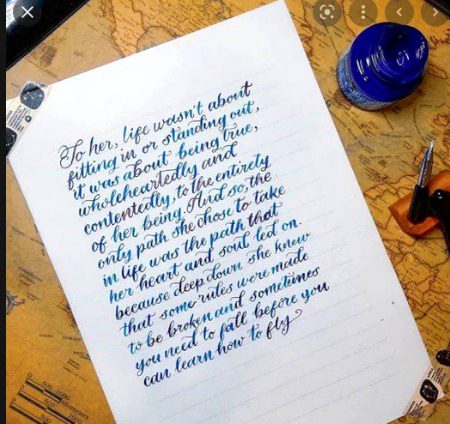 To her, life wasn't about
fitting in or standing out,
it was about being true,
wholeheartedly and
contentedly, to the entirety
of her being. And so, the
only path she chose to take
in life was the path that
her heart and soul led on.
because deep down she knew
that some rules were made
to be broken and sometimes
you need to fall before you
can learn how to fly